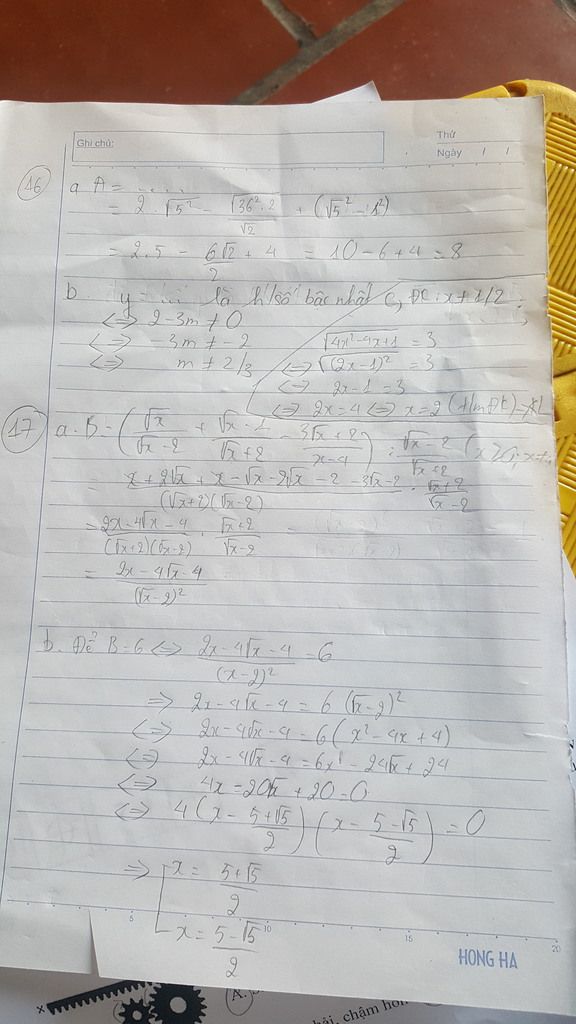 Ghi chú:
Thứ
Ngày / /
16
a. A = .....
= 2.√5² - √(36².2)/√2 + (√5² - 1²)
= 2.5 - 6√2/2 + 4 = 10 - 6 + 4 = 8
b. y = ... là h/số bậc nhất
<=> 2 - 3m ≠ 0
<=> -3m ≠ -2
<=> m ≠ 2/3
c, ĐK: x ≠ 1/2
√(4x² - 4x + 1) = 3
<=> √((2x-1)²) = 3
<=> 2x - 1 = 3
<=> 2x = 4 <=> x = 2 (t/m ĐK)
17
a. B = (√x/(√x-2) + (√x-1)/(√x+2) - (3√x+2)/(x-4)) : (√x-2)/(√x+2)
= (x + 2√x + x - √x - 2√x - 2 - 3√x - 2)/((√x+2)(√x-2)) . (√x+2)/(√x-2)
= (2x - 4√x - 4)/((√x+2)(√x-2)) . (√x+2)/(√x-2)
= (2x - 4√x - 4)/(√x-2)²
b. Để B = 6 <=> (2x - 4√x - 4)/(x-2)² = 6
=> 2x - 4√x - 4 = 6(√x-2)²
<=> 2x - 4√x - 4 = 6(x² - 4x + 4)
<=> 2x - 4√x - 4 = 6x - 24√x + 24
<=> 4x - 20√x + 20 = 0
<=> 4(x - (5+√5)/2)(x - (5-√5)/2) = 0
=> [x = (5+√5)/2
x = (5-√5)/2
5 10 15 20
HONG HA
A.
hải, chậm hơn
x